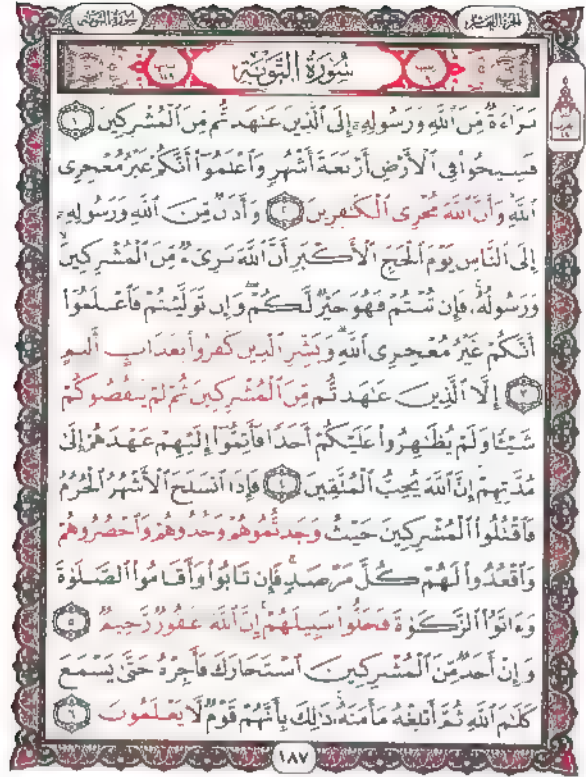 سُورَةُ التَّوبَةِ
الجزء العاشر
سُورَةُ التَّوْبَةِ
بَرَآءَةٌ مِّنَ ٱللَّهِ وَرَسُولِهِۦٓ إِلَى ٱلَّذِينَ عَٰهَدتُّم مِّنَ ٱلْمُشْرِكِينَ ١
فَسِيحُوا۟ فِى ٱلْأَرْضِ أَرْبَعَةَ أَشْهُرٍ وَٱعْلَمُوٓا۟ أَنَّكُمْ غَيْرُ مُعْجِزِى
ٱللَّهِ وَأَنَّ ٱللَّهَ مُخْزِى ٱلْكَٰفِرِينَ ٢ وَأَذَٰنٌ مِّنَ ٱللَّهِ وَرَسُولِهِۦٓ
إِلَى ٱلنَّاسِ يَوْمَ ٱلْحَجِّ ٱلْأَكْبَرِ أَنَّ ٱللَّهَ بَرِىٓءٌ مِّنَ ٱلْمُشْرِكِينَ
وَرَسُولُهُۥ فَإِن تُبْتُمْ فَهُوَ خَيْرٌ لَّكُمْ وَإِن تَوَلَّيْتُمْ فَٱعْلَمُوٓا۟
أَنَّكُمْ غَيْرُ مُعْجِزِى ٱللَّهِ وَبَشِّرِ ٱلَّذِينَ كَفَرُوا۟ بِعَذَابٍ أَلِيمٍ
٣ إِلَّا ٱلَّذِينَ عَٰهَدتُّم مِّنَ ٱلْمُشْرِكِينَ ثُمَّ لَمْ يَنقُصُوكُمْ
شَيْـًٔا وَلَمْ يُظَٰهِرُوا۟ عَلَيْكُمْ أَحَدًا فَأَتِمُّوٓا۟ إِلَيْهِمْ عَهْدَهُمْ إِلَىٰ
مُدَّتِهِمْ إِنَّ ٱللَّهَ يُحِبُّ ٱلْمُتَّقِينَ ٤ فَإِذَا ٱنسَلَخَ ٱلْأَشْهُرُ ٱلْحُرُمُ
فَٱقْتُلُوا۟ ٱلْمُشْرِكِينَ حَيْثُ وَجَدتُّمُوهُمْ وَخُذُوهُمْ وَٱحْصُرُوهُمْ
وَٱقْعُدُوا۟ لَهُمْ كُلَّ مَرْصَدٍ فَإِن تَابُوا۟ وَأَقَامُوا۟ ٱلصَّلَوٰةَ
وَءَاتَوُا۟ ٱلزَّكَوٰةَ فَخَلُّوا۟ سَبِيلَهُمْ إِنَّ ٱللَّهَ غَفُورٌ رَّحِيمٌ ٥
وَإِنْ أَحَدٌ مِّنَ ٱلْمُشْرِكِينَ ٱسْتَجَارَكَ فَأَجِرْهُ حَتَّىٰ يَسْمَعَ
كَلَٰمَ ٱللَّهِ ثُمَّ أَبْلِغْهُ مَأْمَنَهُۥ ذَٰلِكَ بِأَنَّهُمْ قَوْمٌ لَّا يَعْلَمُونَ ٦
١٨٧